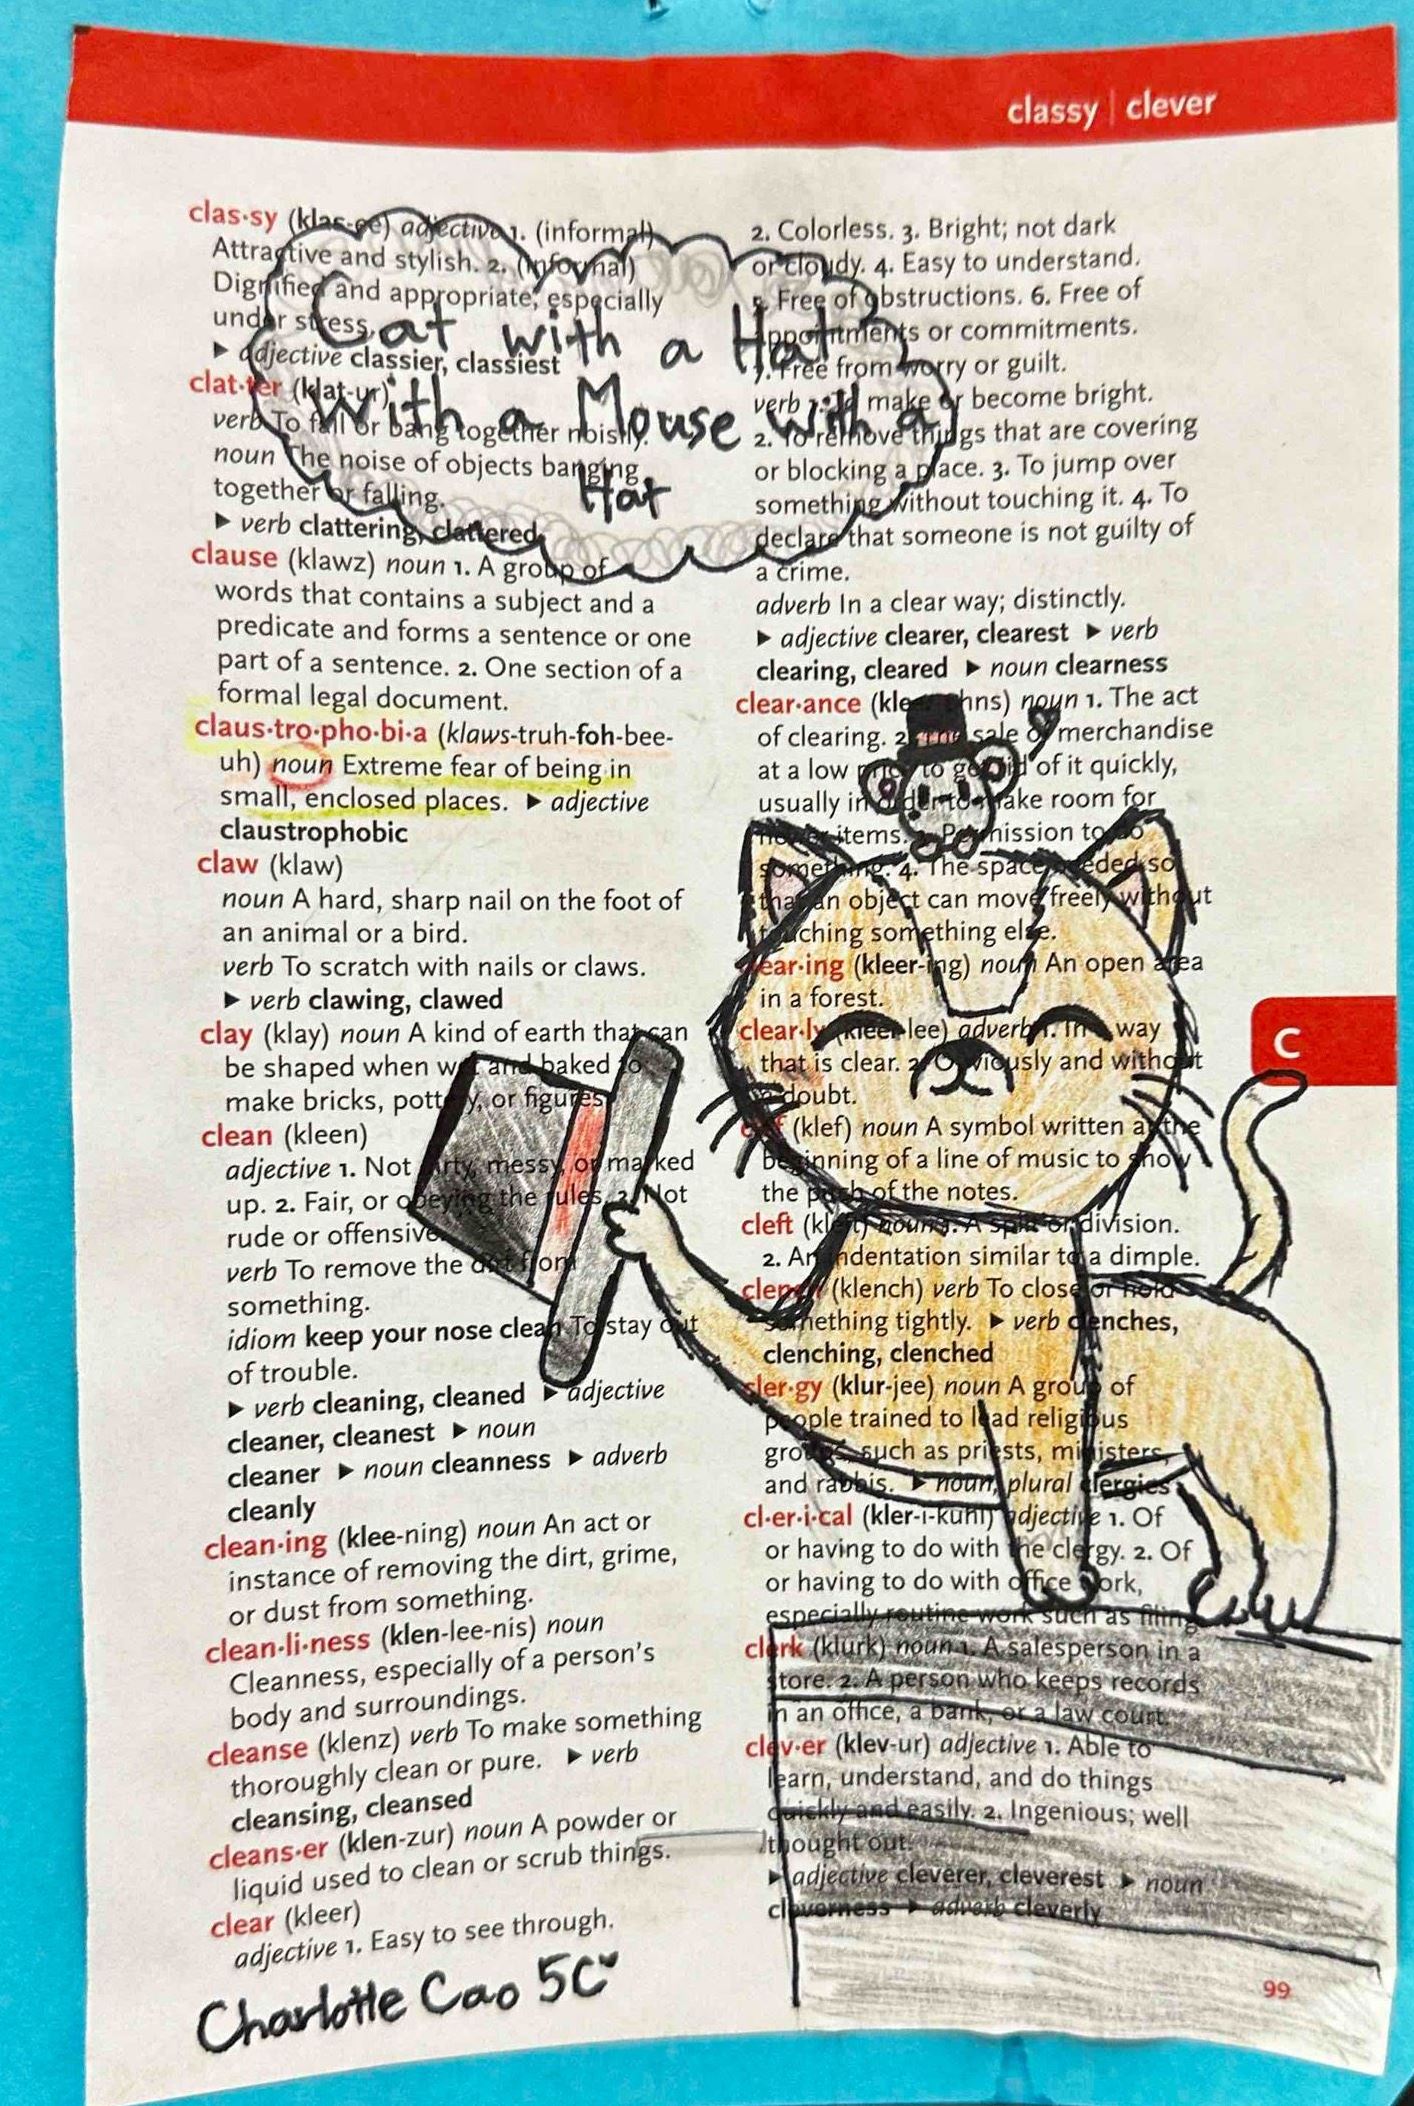 classy | clever
clas·sy (klas-ee) adjective 1. (informal)
Attractive and stylish. 2. (informal)
Dignified and appropriate, especially
under stress.
▶ adjective classier, classiest
clat·ter (klat-ur)
verb To fall or bang together noisily.
noun The noise of objects banging
together or falling.
▶ verb clattering, clattered
clause (klawz) noun 1. A group of
words that contains a subject and a
predicate and forms a sentence or one
part of a sentence. 2. One section of a
formal legal document.
claus·tro·pho·bi·a (klaws-truh-foh-bee-
uh) noun Extreme fear of being in
small, enclosed places. ▶ adjective
claustrophobic
claw (klaw)
noun A hard, sharp nail on the foot of
an animal or a bird.
verb To scratch with nails or claws.
▶ verb clawing, clawed
clay (klay) noun A kind of earth that can
be shaped when wet and baked to
make bricks, pottery, or figures.
clean (kleen)
adjective 1. Not dirty, messy, or marked
up. 2. Fair, or obeying the rules. 3. Not
rude or offensive.
verb To remove the dirt from
something.
idiom keep your nose clean To stay out
of trouble.
▶ verb cleaning, cleaned ▶ adjective
cleaner, cleanest ▶ noun
cleaner ▶ noun cleanness ▶ adverb
cleanly
clean·ing (klee-ning) noun An act or
instance of removing the dirt, grime,
or dust from something.
clean·li·ness (klen-lee-nis) noun
Cleanness, especially of a person's
body and surroundings.
cleanse (klenz) verb To make something
thoroughly clean or pure. ▶ verb
cleansing, cleansed
cleans·er (klen-zur) noun A powder or
liquid used to clean or scrub things.
clear (kleer)
adjective 1. Easy to see through.
2. Colorless. 3. Bright; not dark
or cloudy. 4. Easy to understand.
5. Free of obstructions. 6. Free of
appointments or commitments.
7. Free from worry or guilt.
verb 1. To make or become bright.
2. To remove things that are covering
or blocking a place. 3. To jump over
something without touching it. 4. To
declare that someone is not guilty of
a crime.
adverb In a clear way; distinctly.
▶ adjective clearer, clearest ▶ verb
clearing, cleared ▶ noun clearness
clear·ance (kleer-uhns) noun 1. The act
of clearing. 2. The sale of merchandise
at a low price to get rid of it quickly,
usually in order to make room for
newer items. 3. Permission to do
something. 4. The space needed so
that an object can move freely without
touching something else.
clear·ing (kleer-ing) noun An open area
in a forest.
clear·ly (kleer-lee) adverb 1. In a way
that is clear. 2. Obviously and without
a doubt.
clef (klef) noun A symbol written at the
beginning of a line of music to show
the pitch of the notes.
cleft (kleft) noun 1. A split or division.
2. An indentation similar to a dimple.
clench (klench) verb To close or hold
something tightly. ▶ verb clenches,
clenching, clenched
cler·gy (klur-jee) noun A group of
people trained to lead religious
groups, such as priests, ministers,
and rabbis. ▶ noun, plural clergies
cl·er·i·cal (kler-i-kuhl) adjective 1. Of
or having to do with the clergy. 2. Of
or having to do with office work,
especially routine work such as filing.
clerk (klurk) noun 1. A salesperson in a
store. 2. A person who keeps records
in an office, a bank, or a law court.
clev·er (klev-ur) adjective 1. Able to
learn, understand, and do things
quickly and easily. 2. Ingenious; well
thought out.
▶ adjective cleverer, cleverest ▶ noun
cleverness ▶ adverb cleverly
Cat with a Hat
With a Mouse with a
Hat
C
99
Charlotte Cao 5C